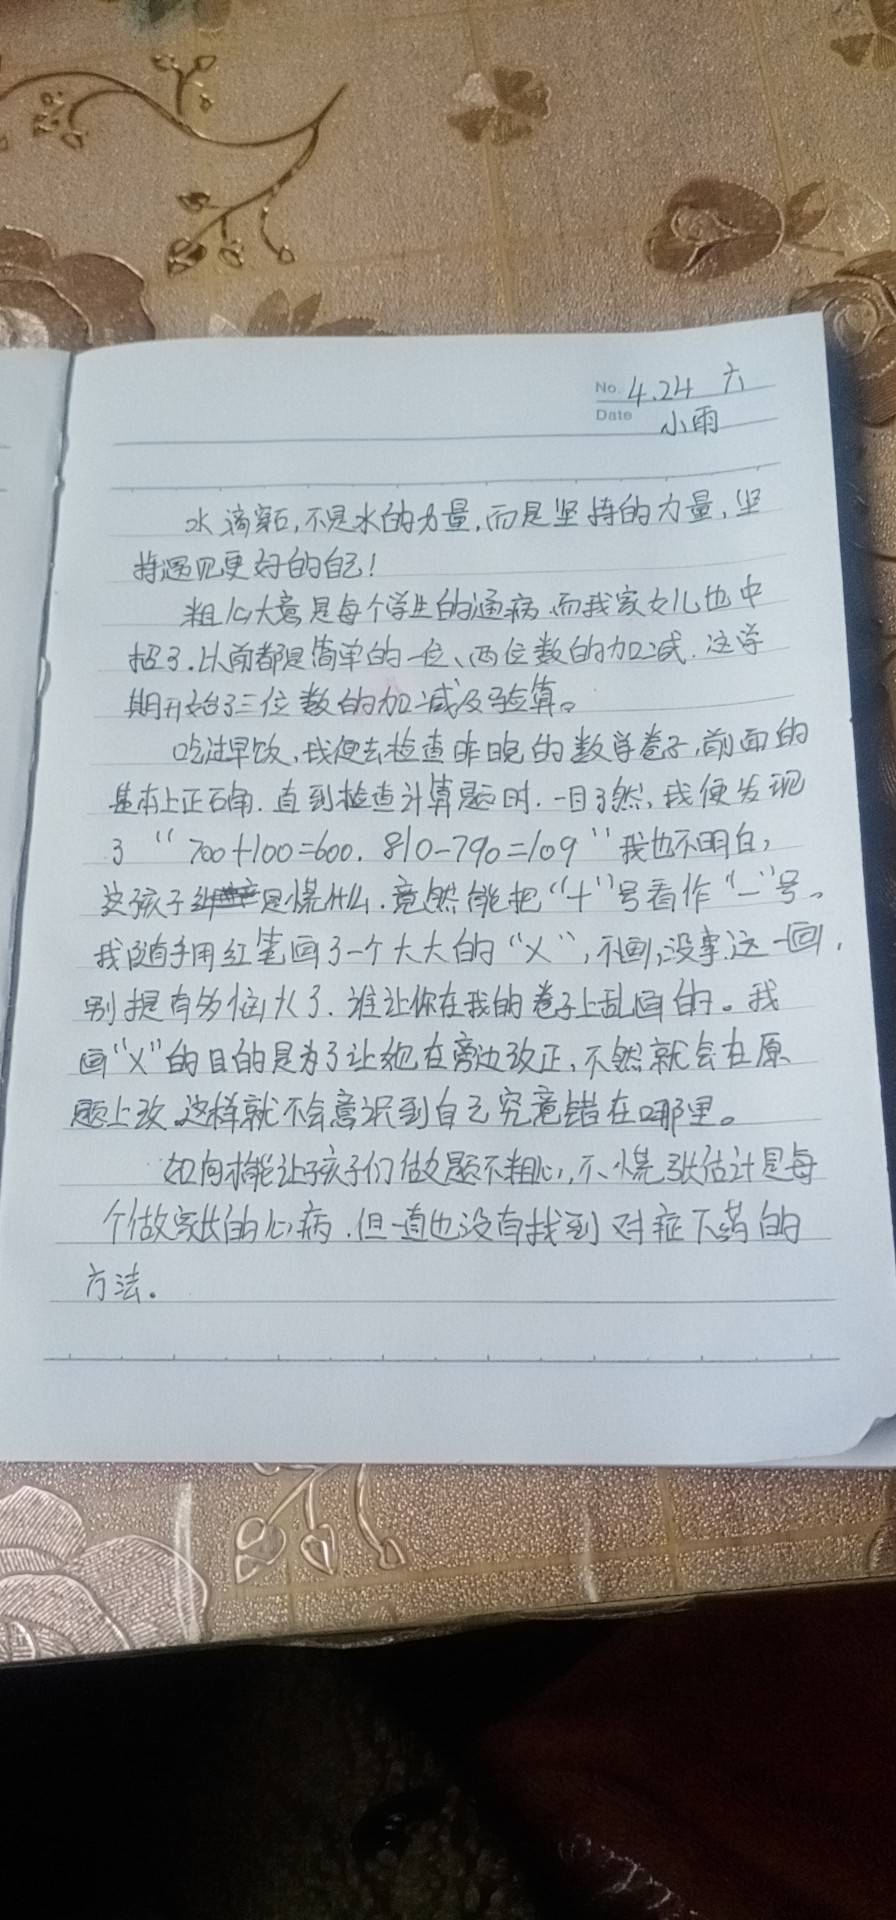 No. 4.24 六
Date 小雨
水滴穿石,不是水的力量,而是坚持的力量,坚
持遇见更好的自己!
粗心大意是每个学生的通病.而我家女儿也中
招了.以前都是简单的一位、两位数的加减.这学
期开始了三位数的加减及验算。
吃过早饭,我便去检查昨晚的数学卷子,前面的
基本上正确.直到检查计算题时.一目了然,我便发现
了“700+100=600.810-790=109”我也不明白,
这孩子是慌什么.竟然能把“十”号看作“一”号。
我随手用红笔画了一个大大的“X”,不画,没事,这一画,
别提有多恼火了.谁让你在我的卷子上乱画的。我
画“X”的目的是为了让她在旁边改正,不然就会在原
题上改.这样就不会意识到自己究竟错在哪里。
如何才能让孩子们做题不粗心,不慌张估计是每
个做家长的心病.但一直也没有找到对症下药的
方法.